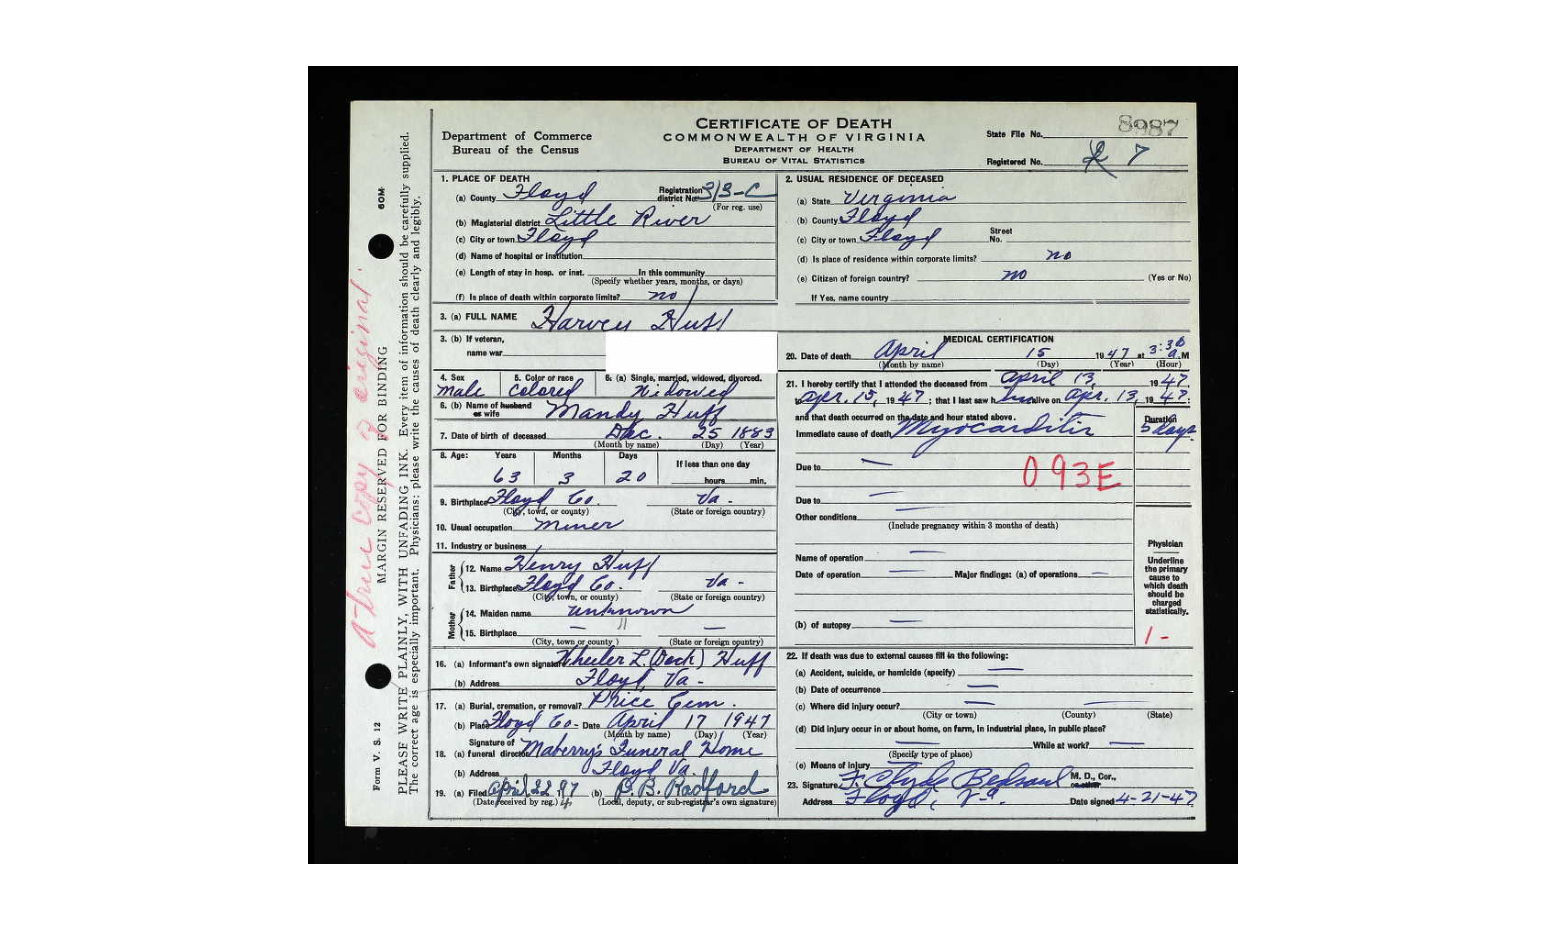 CERTIFICATE OF DEATH
COMMONWEALTH OF VIRGINIA
DEPARTMENT OF HEALTH
BUREAU OF VITAL STATISTICS
Department of Commerce
Bureau of the Census
State File No. 8987
Registered No. 7
1. PLACE OF DEATH
(a) County Floyd Registration district No. 313-C
(For reg. use)
(b) Magisterial district Little River
(c) City or town Floyd
(d) Name of hospital or institution
(e) Length of stay in hosp. or inst. In this community
(Specify whether years, months, or days)
(f) Is place of death within corporate limits? no
2. USUAL RESIDENCE OF DECEASED
(a) State Virginia
(b) County Floyd
(c) City or town Floyd Street No.
(d) Is place of residence within corporate limits? no
(e) Citizen of foreign country? no (Yes or No)
If Yes, name country
3. (a) FULL NAME Harvey Huff
3. (b) If veteran,
name war
4. Sex 5. Color or race 6. (a) Single, married, widowed, divorced.
male Colored Widowed
6. (b) Name of husband or wife Mandy Huff
7. Date of birth of deceased Dec. 25 1883
(Month by name) (Day) (Year)
8. Age: Years Months Days If less than one day
63 3 20 hours min.
9. Birthplace Floyd Co. Va -
(City, town, or county) (State or foreign country)
10. Usual occupation Miner
11. Industry or business
Father
12. Name Henry Huff
13. Birthplace Floyd Co. Va -
(City, town, or county) (State or foreign country)
Mother
14. Maiden name unknown
15. Birthplace — —
(City, town or county) (State or foreign country)
16. (a) Informant's own signature Wheeler L. (Dock) Huff
(b) Address Floyd, Va -
17. (a) Burial, cremation, or removal? Price Cem.
(b) Place Floyd Co - Date April 17 1947
(Month by name) (Day) (Year)
18. (a) Signature of funeral director Maberry's Funeral Home
(b) Address Floyd Va.
19. (a) Filed April 22 47 (b) B. B. Radford
(Date received by reg.) (Local, deputy, or sub-registrar's own signature)
MEDICAL CERTIFICATION
20. Date of death April 15 1947 at 3:30 a.M
(Month by name) (Day) (Year) (Hour)
21. I hereby certify that I attended the deceased from April 13, 1947
to Apr. 15, 1947; that I last saw him alive on Apr. 13, 1947;
and that death occurred on the date and hour stated above.
Duration
Immediate cause of death Myocarditis 5 days
Due to —
093E
Due to —
Other conditions —
(Include pregnancy within 3 months of death)
Name of operation —
Date of operation — Major findings: (a) of operations —
(b) of autopsy —
Physician
Underline
the primary
cause to
which death
should be
charged
statistically.
1 -
22. If death was due to external causes fill in the following:
(a) Accident, suicide, or homicide (specify) —
(b) Date of occurrence —
(c) Where did injury occur? — —
(City or town) (County) (State)
(d) Did injury occur in or about home, on farm, in industrial place, in public place?
— While at work? —
(Specify type of place)
(e) Means of injury —
23. Signature F. Clyde Bedsaul M. D., Cor., or other
Address Floyd, Va. Date signed 4-21-47
a true copy of original
Form V. S. 12 MARGIN RESERVED FOR BINDING 60M
PLEASE WRITE PLAINLY, WITH UNFADING INK. Every item of information should be carefully supplied.
The correct age is especially important. Physicians: please write the causes of death clearly and legibly.